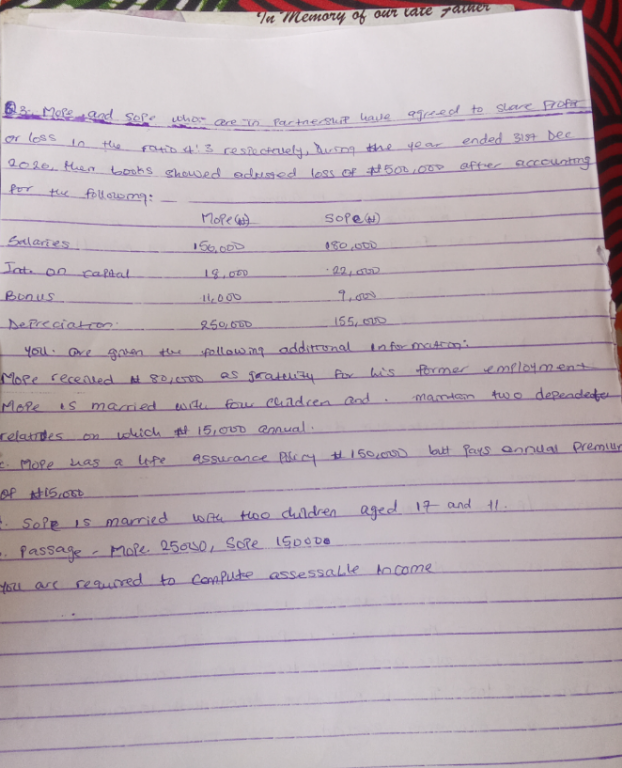 In Memory of our late Father
Q3. Mope and Sope who are in Partnership have agreed to share Profit
or loss in the ratio 4:3 respectively, During the year ended 31st Dec
2020, their books showed adjusted loss of ₦500,000 after accounting
for the following:
Mope(₦) Sope(₦)
Salaries 150,000 180,000
Int. on capital 18,000 22,000
Bonus 11,000 9,000
Depreciation 250,000 155,000
You are given the following additional information:
Mope received ₦ 80,000 as gratuity for his former employment
Mope is married with four children and maintain two dependent
relatives on which ₦ 15,000 annual.
Mope has a life assurance Policy ₦ 150,000 but Pays annual Premium
of ₦15,000
Sope is married with two children aged 17 and 11.
Passage - Mope 25000, Sope 15000
You are required to compute assessable Income